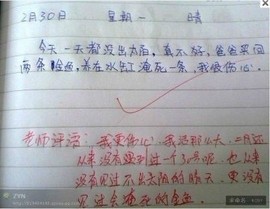 2月30日 星期一 晴
今天一天都没出太阳，真不好，爸爸买回
两条金鱼，养在水缸淹死一条，我很伤心。
老师评语：我更伤心！我活那么大，二月还
从来没有碰到过一个30号呢，也从来
没有见过不出太阳的晴天，更没有
见过会淹死的金鱼